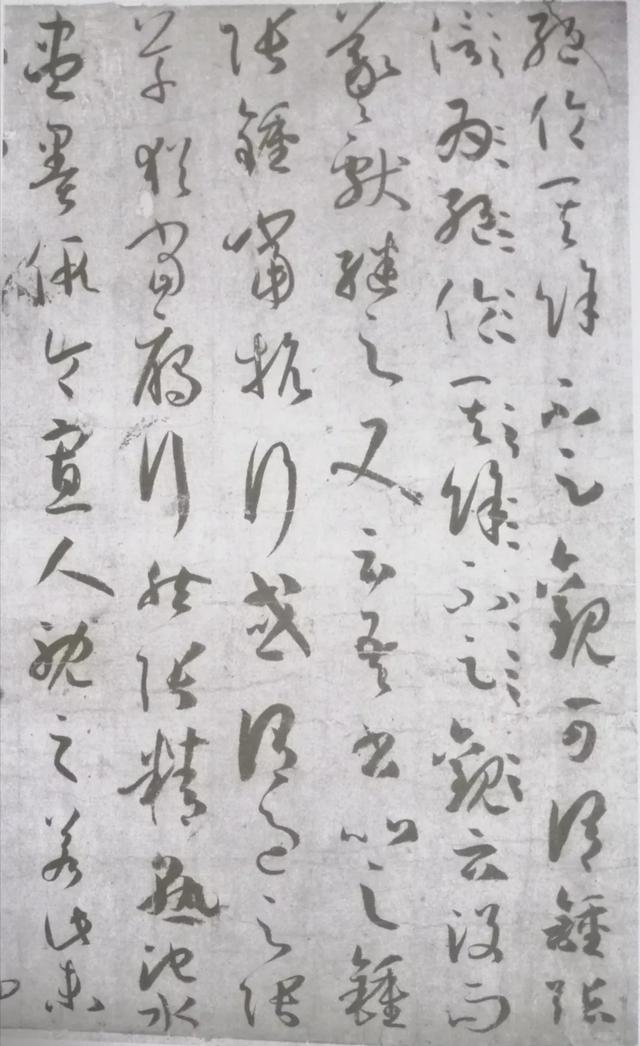 絕倫其餘不足觀可謂鍾張
信為絕倫其餘不足觀云沒而
羲獻繼之又云吾書比之鍾
張鍾當抗行或謂過之張
草猶當雁行然張精熟池水
盡墨假令寡人耽之若此未